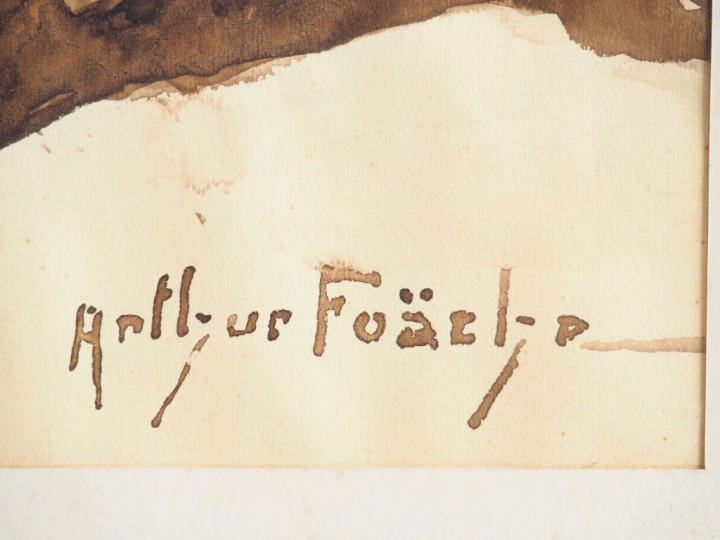 Arthur Foäche